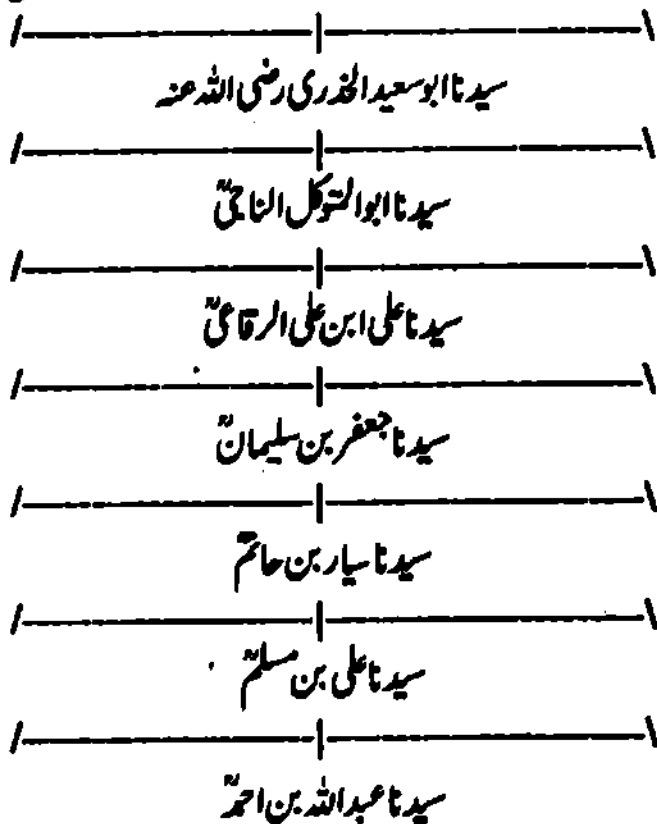 سیدنا ابو سعید الخدری رضی اللہ عنہ
سیدنا ابو المتوکل الناجیؒ
سیدنا علی ابن علی الرفاعیؒ
سیدنا جعفر بن سلیمانؒ
سیدنا سیار بن حاتمؒ
سیدنا علی بن مسلمؒ
سیدنا عبداللہ بن احمدؒ